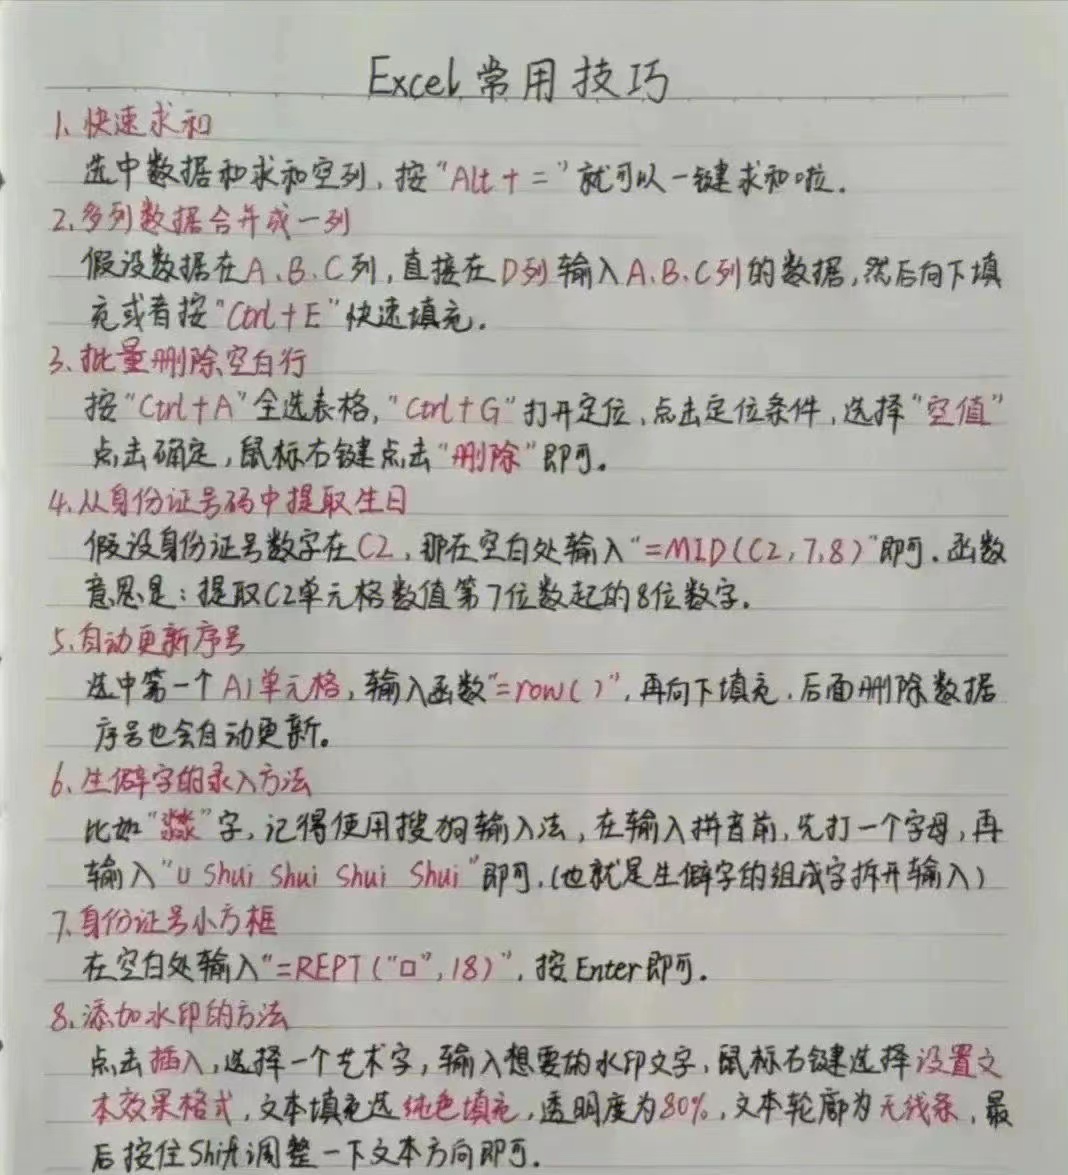 Excel常用技巧
1、快速求和
选中数据和求和空列，按“Alt+=”就可以一键求和啦。
2、多列数据合并成一列
假设数据在A、B、C列，直接在D列输入A、B、C列的数据，然后向下填
充或者按“Ctrl+E”快速填充。
3、批量删除空白行
按“Ctrl+A”全选表格，“Ctrl+G”打开定位、点击定位条件，选择“空值”
点击确定，鼠标右键点击“删除”即可。
4、从身份证号码中提取生日
假设身份证号数字在C2，那在空白处输入“=MID(C2,7,8)”即可。函数
意思是：提取C2单元格数值第7位数起的8位数字。
5、自动更新序号
选中第一个A1单元格，输入函数“=row()”，再向下填充，后面删除数据
序号也会自动更新。
6、生僻字的录入方法
比如“㵘”字，记得使用搜狗输入法，在输入拼音前，先打一个字母，再
输入“U Shui Shui Shui Shui”即可。(也就是生僻字的组成字拆开输入)
7、身份证号小方框
在空白处输入“=REPT("□",18)”，按Enter即可。
8、添加水印的方法
点击插入，选择一个艺术字，输入想要的水印文字，鼠标右键选择设置文
本效果格式，文本填充选纯色填充，透明度为80%，文本轮廓为无线条，最
后按住Shift调整一下文本方向即可。